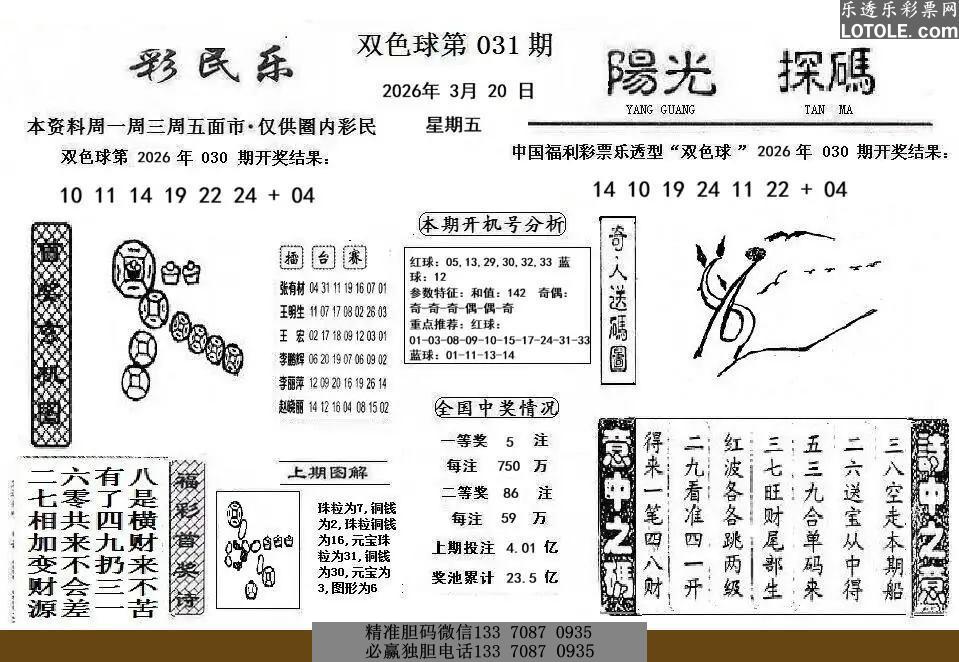 乐透乐彩票网
LOTOLE.com
彩民乐
双色球第 031 期
2026年 3月 20 日
星期五
陽光 探碼
YANG GUANG TAN MA
本资料周一周三周五面市·仅供圈内彩民
双色球第 2026 年 030 期开奖结果:
10 11 14 19 22 24 + 04
中国福利彩票乐透型“双色球 ” 2026 年 030 期开奖结果:
14 10 19 24 11 22 + 04
擂台赛
张有材 04 31 11 19 16 07 01
王明生 11 07 17 08 02 26 03
王 宏 02 17 18 09 12 03 01
李鹏辉 06 20 19 07 06 09 02
李丽萍 12 09 20 16 19 26 14
赵晓丽 14 12 16 04 08 15 02
本期开机号分析
红球: 05,13,29,30,32,33 蓝
球: 12
参数特征: 和值: 142 奇偶:
奇-奇-奇-偶-偶-奇
重点推荐: 红球:
01-03-08-09-10-15-17-24-31-33
蓝球: 01-11-13-14
奇人送碼圖
全国中奖情况
一等奖 5 注
每注 750 万
二等奖 86 注
每注 59 万
上期投注 4.01 亿
奖池累计 23.5 亿
福彩首奖诗
八是横财来不苦
有了四九扔三一
六零共来不会差
二七相加变财源
上期图解
珠粒为7,铜钱
为2,珠粒铜钱
为16,元宝珠
粒为31,铜钱
为30,元宝为
3,图形为6
三八空走本期船
二六送宝从中得
五三九合单码来
三七旺财尾部生
红波各各跳两级
二九看准四一开
得来一笔四八财
精准胆码微信133 7087 0935
必赢独胆电话133 7087 0935